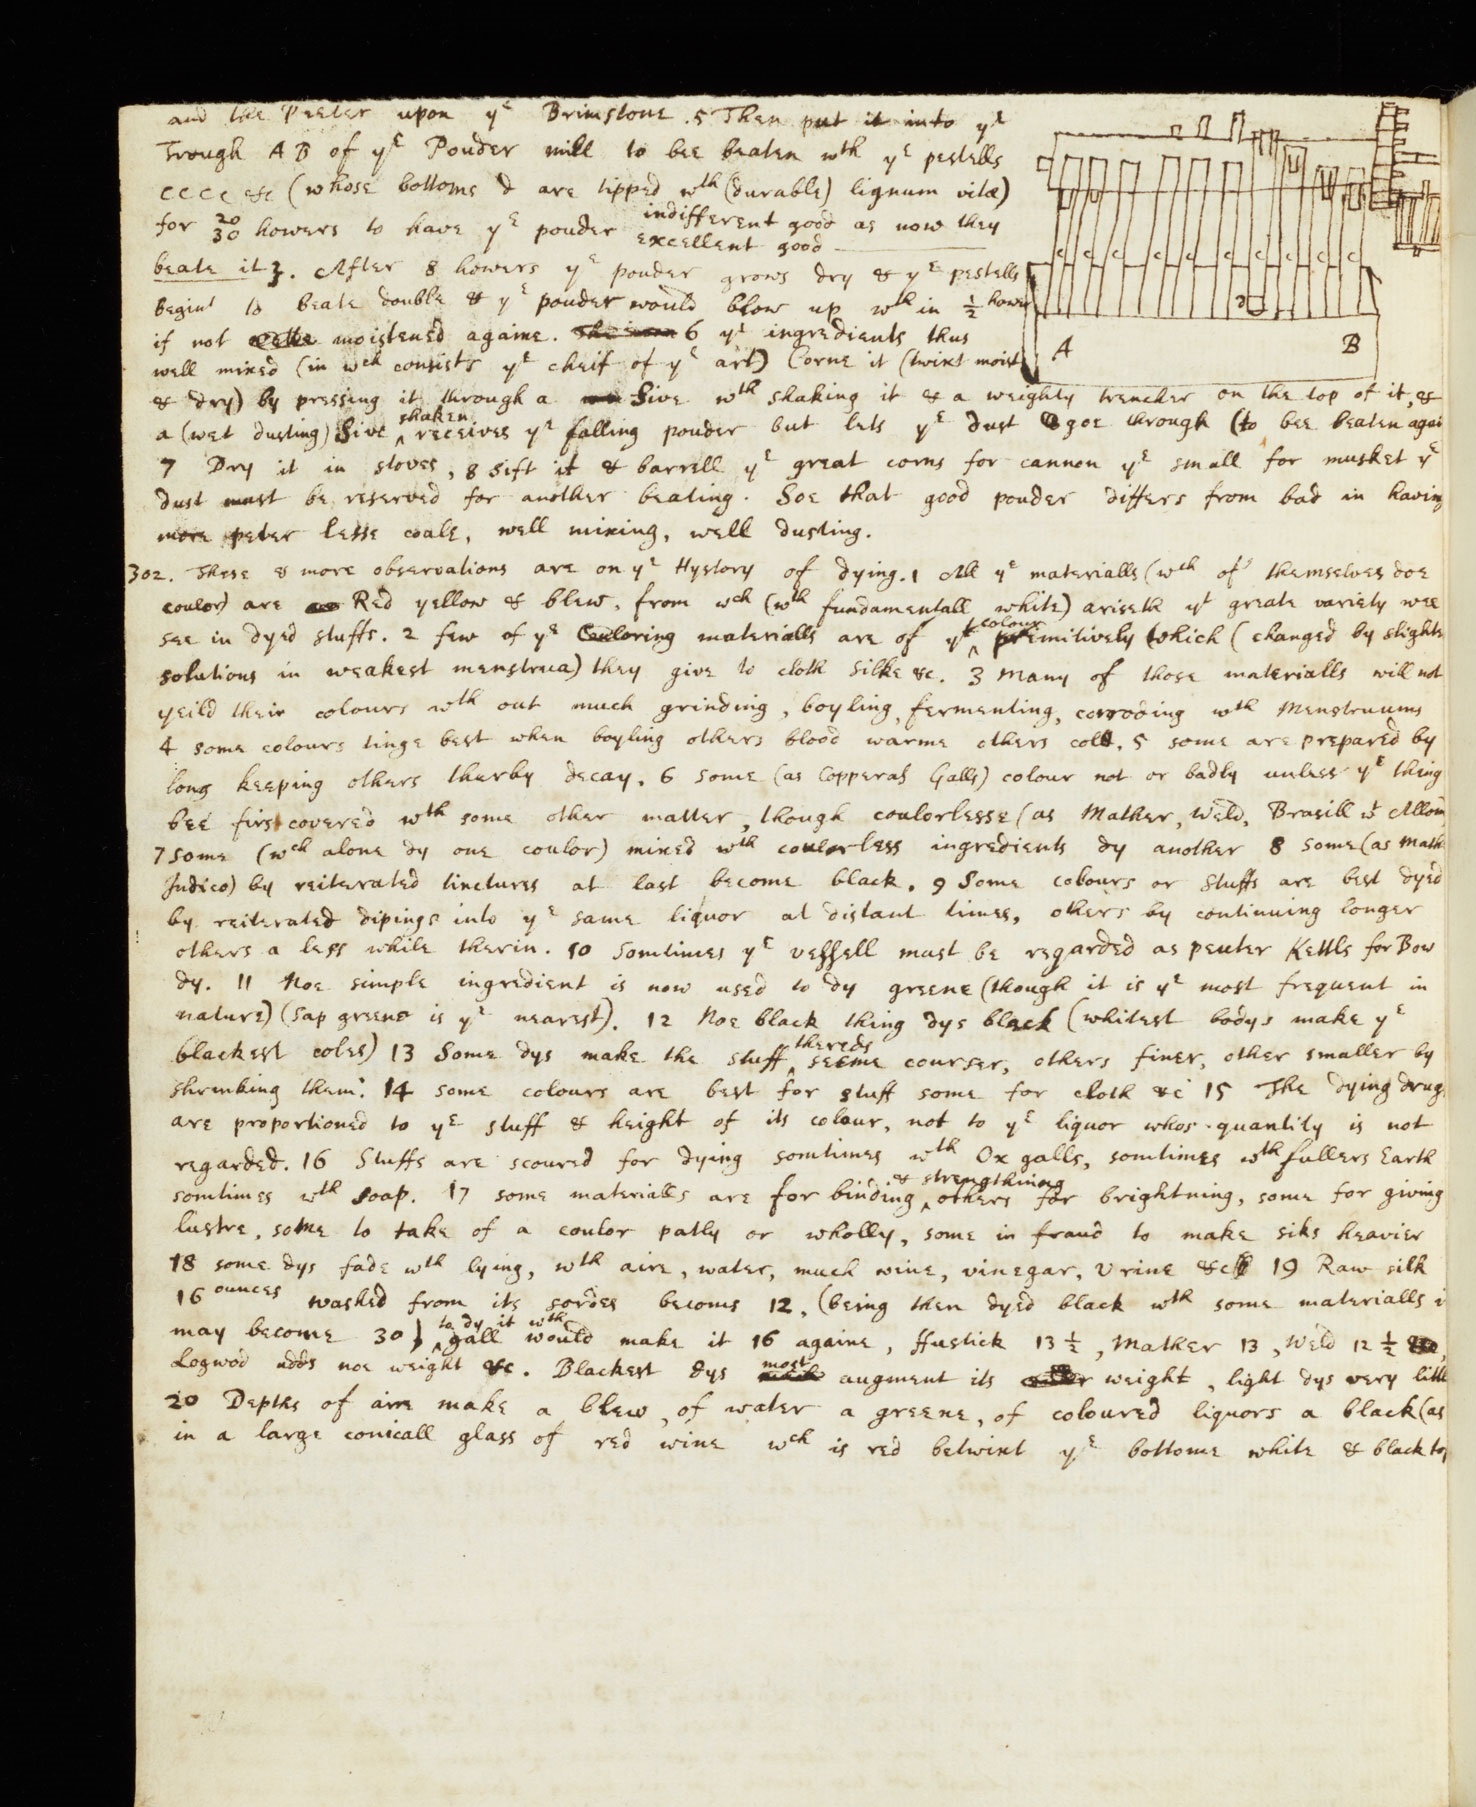 and the Peeter upon yᵉ Brimstone. 5 Then put it into yᵉ
Trough AB of yᵉ Pouder mill to bee beaten wᵗʰ yᵉ pestells
cccc &c (whose bottoms d are tipped wᵗʰ (durable) lignum vitæ)
for 20 30 howers to have yᵉ pouder indifferent good as now they excellent good
beate it 3. After 8 howers yᵉ pouder grows dry & yᵉ pestells
begin to beate double & yᵉ pouder would blow up wᵗʰin ½ hower
if not moistened againe. 6 yᵉ ingredients thus
well mixed (in wᶜʰ consists yᵉ cheif of yᵉ art) Corne it (twixt moist
& dry) by pressing it through a Sive wᵗʰ shaking it & a weighty trencher on the top of it, &
a (wet dusting) Sive shaken receives yᵉ falling pouder but lets yᵉ dust goe through (to bee beaten agai
7 Dry it in stoves, 8 Sift it & barrell yᵉ great corns for cannon yᵉ small for musket yᵉ
dust must be reserved for another beating. Soe that good pouder differs from bad in having
more peter lesse coale, well mixing, well dusting.
302. These & more observations are on yᵉ Hystory of dying. 1 All yᵉ materialls (wᶜʰ of themselves doe
coulor) are Red yellow & blew, from wᶜʰ (wᵗʰ fundamentall white) ariseth yᵗ greate variety wee
see in dyed stuffs. 2 few of yᵉ Couloring materialls are of yᵗ colour primitively which (changed by slightest
solutions in weakest menstrua) they give to cloth Silke &c. 3 Many of those materialls will not
yeild their colours wᵗʰ out much grinding, boyling, fermenting, corroding wᵗʰ Menstruums
4 some colours tinge best when boyling others blood warme others cold. 5 some are prepared by
long keeping others thereby decay. 6 Some (as Copperas Galls) colour not or badly unless yᵉ thing
bee first covered wᵗʰ some other matter, though coulorlesse (as Mather, Weld, Brasill wᵗ Allom
7 Some (wᶜʰ alone dy one coulor) mixed wᵗʰ coulorless ingredients dy another 8 Some (as Math
Indico) by reiterated tinctures at last become black. 9 Some colours or Stuffs are best dyed
by reiterated dipings into yᵉ same liquor at distant times, others by continuing longer
others a less while therin. 10 Somtimes yᵉ vessell must be regarded as peuter Kettls for Bow
dy. 11 Noe simple ingredient is now used to dy greene (though it is yᵉ most frequent in
nature) (Sap greene is yᵉ nearest). 12 Noe black thing dys black (whitest bodys make yᵉ
blackest coles) 13 Some dys make the stuff thereds seeme courser, others finer, other smaller by
shrinking them. 14 some colours are best for stuff some for cloth &c 15 The dying drugs
are proportioned to yᵉ stuff & height of its colour, not to yᵉ liquor whos quantity is not
regarded. 16 Stuffs are scoured for dying somtimes wᵗʰ Ox galls, somtimes wᵗʰ fullers Earth
somtimes wᵗʰ soap. 17 some materialls are for binding & strengthining others for brightning, some for giving
lustre, some to take of a coulor patly or wholly, some in fraud to make siks heavier
18 some dys fade wᵗʰ lying, wᵗʰ aire, water, much wine, vinegar, Urine &c 19 Raw silk
16 ounces washed from its sordes becoms 12, (being then dyed black wᵗʰ some materialls i
may become 30) to dy it wᵗʰ gall would make it 16 againe, ffustick 13 ½, Mather 13, Weld 12 ½
Logwod adds noe weight &c. Blackest dys most augment its weight, light dys very little
20 Depths of aire make a blew, of water a greene, of coloured liquors a black (as
in a large conicall glass of red wine wᶜʰ is red betwixt yᵉ bottome white & black top
c c c c c c c c c c
d
A B